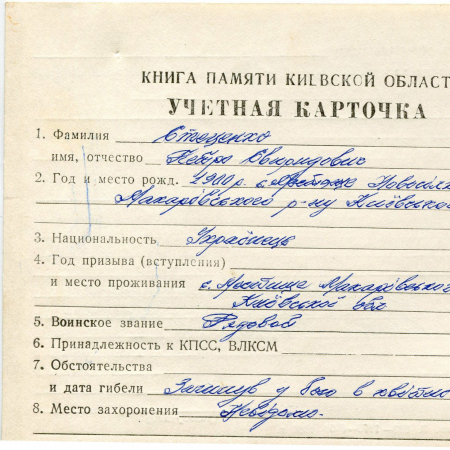 КНИГА ПАМЯТИ КИЕВСКОЙ ОБЛАСТ
УЧЕТНАЯ КАРТОЧКА
1. Фамилия Стеценко
имя, отчество Петро
2. Год и место рожд. 1900 р. с.
Макарівського р-ну Київської
3. Национальность Українець
4. Год призыва (вступления)
и место проживания с. Мостище Макарівського
Київської обл
5. Воинское звание Рядовой
6. Принадлежность к КПСС, ВЛКСМ
7. Обстоятельства
и дата гибели Загинув у бою в квітні
8. Место захоронения Невідомо.